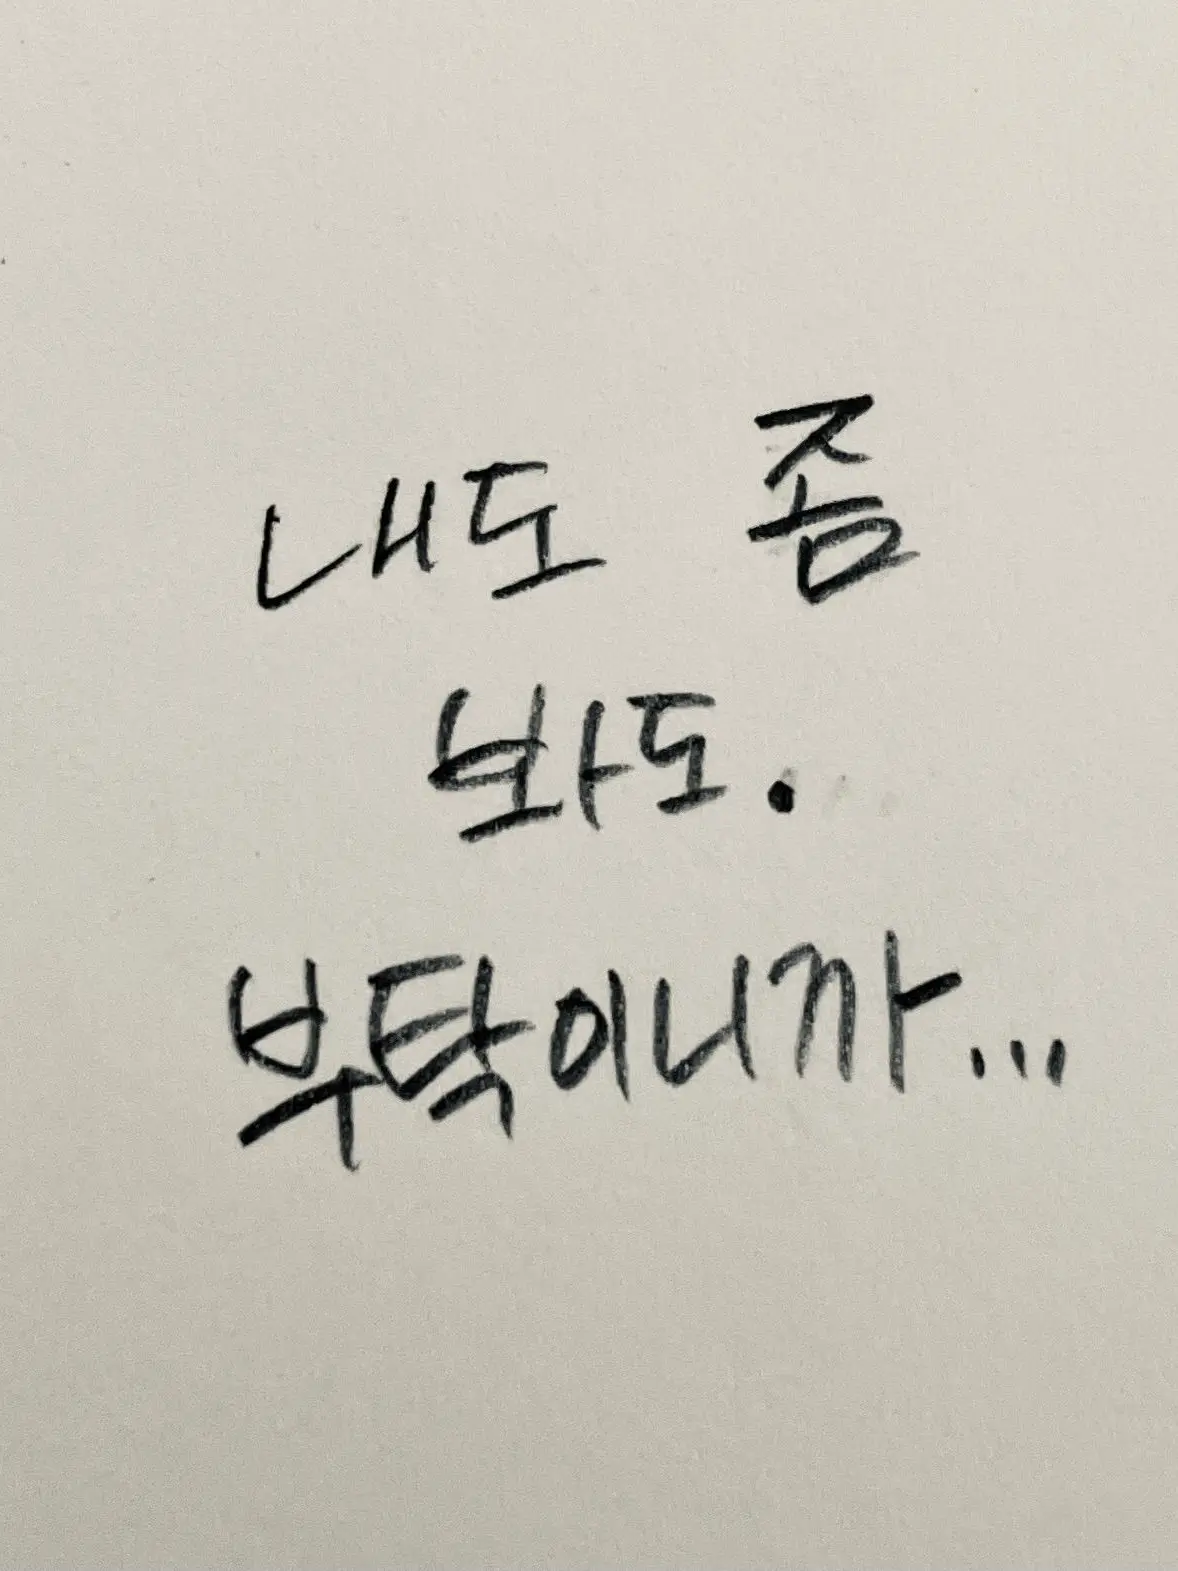 내도 좀
봐도.
부탁이니까...